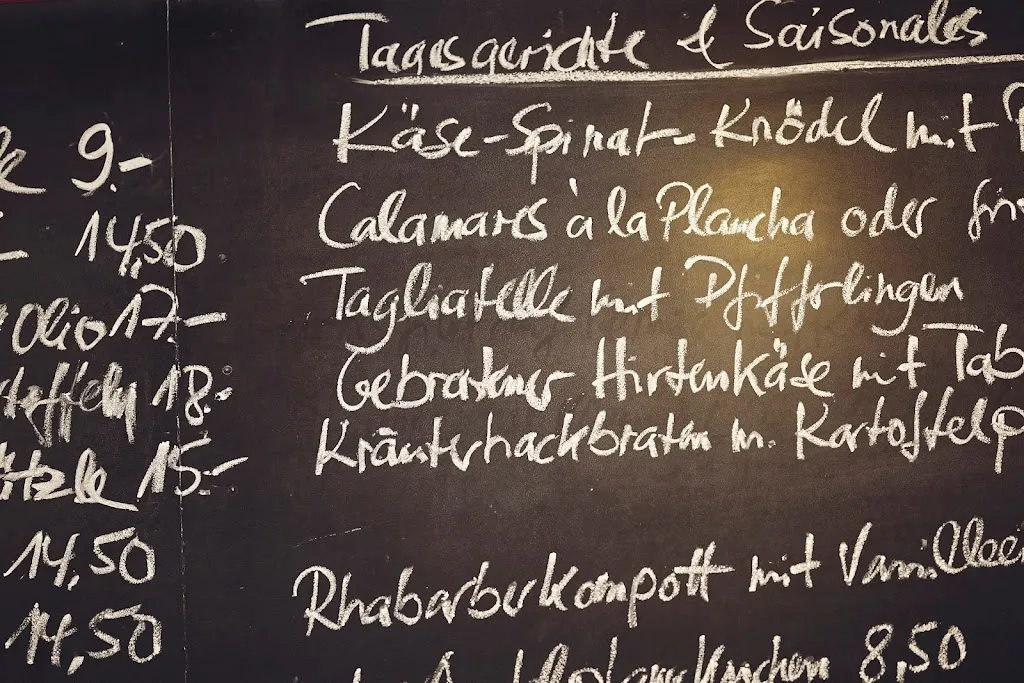 9.-
14,50
Olio 17.-
18.-
15.-
14,50
14,50
Tagesgerichte & Saisonales
Käse-Spinat-Knödel mit
Calamares à la Plancha oder
Tagliatelle mit Pfifferlingen
Gebratener Hirtenkäse mit Tab
Kräuterhackbraten m. Kartoffelp
Rhabarberkompott mit Vanillee
kuchen 8,50